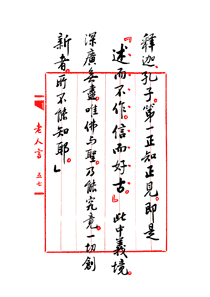 釋迦孔子第一正知正見。即是
『述而不作。信而好古。』此中義境。
深廣無盡唯佛與聖乃能究竟。一切創
新者所不能知耶」
老人言 五七